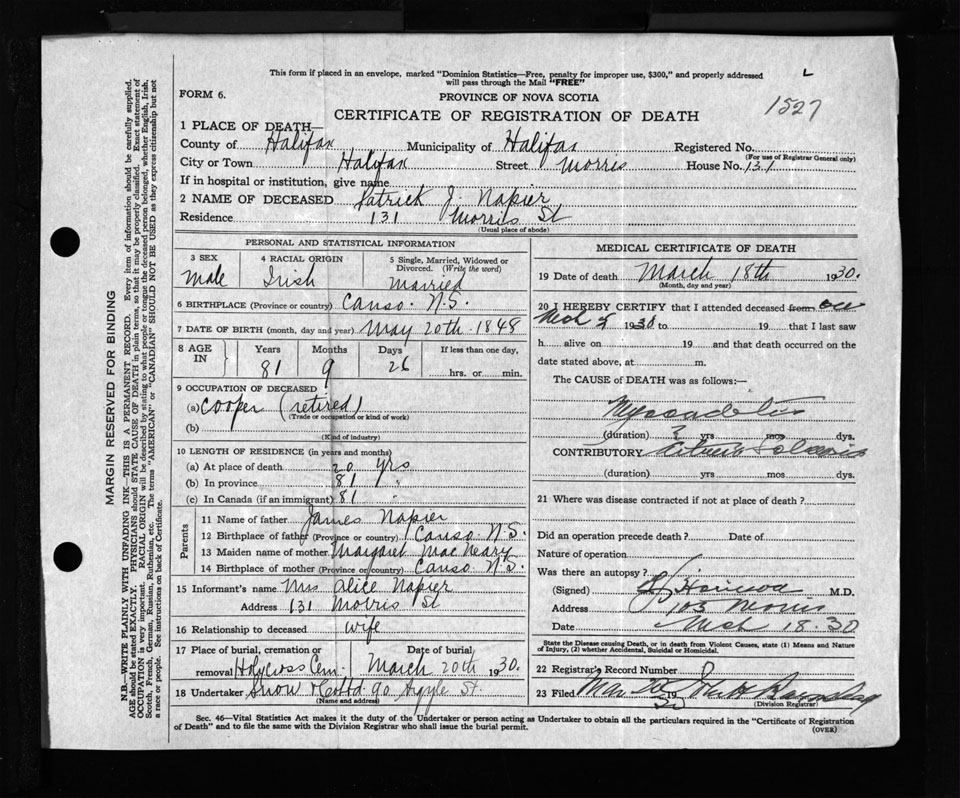 This form if placed in an envelope, marked "Dominion Statistics—Free, penalty for improper use, $300," and properly addressed
will pass through the Mail "FREE"
L
FORM 6.
PROVINCE OF NOVA SCOTIA
CERTIFICATE OF REGISTRATION OF DEATH
1527
1 PLACE OF DEATH—
County of Halifax Municipality of Halifax Registered No.
(For use of Registrar General only)
City or Town Halifax Street Morris House No. 131
If in hospital or institution, give name
2 NAME OF DECEASED Patrick J. Napier
Residence 131 Morris St
(Usual place of abode)
PERSONAL AND STATISTICAL INFORMATION
3 SEX 4 RACIAL ORIGIN 5 Single, Married, Widowed or Divorced. (Write the word)
Male Irish Married
6 BIRTHPLACE (Province or country) Canso. N.S.
7 DATE OF BIRTH (month, day and year) May 20th 1848
8 AGE IN Years Months Days If less than one day,
81 9 26 hrs. or min.
9 OCCUPATION OF DECEASED
(a) Cooper (retired)
(Trade or occupation or kind of work)
(b)
(Kind of industry)
10 LENGTH OF RESIDENCE (in years and months)
(a) At place of death 20 yrs
(b) In province 81 "
(c) In Canada (if an immigrant) 81 "
Parents
11 Name of father James Napier
12 Birthplace of father (Province or country) Canso N.S.
13 Maiden name of mother Margaret MacNeary
14 Birthplace of mother (Province or country) Canso N.S.
15 Informant's name Mrs Alice Napier
Address 131 Morris St
16 Relationship to deceased wife
17 Place of burial, cremation or Date of burial
removal Holycross Cem. March 20th 1930.
18 Undertaker Snow & Co Ltd 90 Argyle St.
(Name and address)
MEDICAL CERTIFICATE OF DEATH
19 Date of death March 18th 1930.
(Month, day and year)
20 I HEREBY CERTIFY that I attended deceased from on
Mch 5 1930 to 19 that I last saw
h alive on 19 and that death occurred on the
date stated above, at m.
The CAUSE of DEATH was as follows:—
(duration) ? yrs mos dys.
CONTRIBUTORY
(duration) yrs mos dys.
21 Where was disease contracted if not at place of death?
Did an operation precede death? Date of
Nature of operation
Was there an autopsy?
(Signed) M.D.
Address 103 Morris
Date Mch 18.30
State the Disease causing Death, or in death from Violent Causes, state (1) Means and Nature
of Injury, (2) whether Accidental, Suicidal or Homicidal.
22 Registrar's Record Number
23 Filed Mar 20 19 30
(Division Registrar)
Sec. 46—Vital Statistics Act makes it the duty of the Undertaker or person acting as Undertaker to obtain all the particulars required in the "Certificate of Registration
of Death" and to file the same with the Division Registrar who shall issue the burial permit.
(OVER)
MARGIN RESERVED FOR BINDING
N.B.—WRITE PLAINLY WITH UNFADING INK—THIS IS A PERMANENT RECORD. Every item of information should be carefully supplied.
AGE should be stated EXACTLY. PHYSICIANS should STATE CAUSE OF DEATH in plain terms, so that it may be properly classified. Exact statement of
OCCUPATION is very important. RACIAL ORIGIN will be described by stating to what people or tongue the deceased person belonged, whether English, Irish,
Scotch, French, German, Russian, Ruthenian, etc. The terms "AMERICAN" or "CANADIAN" SHOULD NOT BE USED as they express citizenship but not
a race or people. See instructions on back of Certificate.